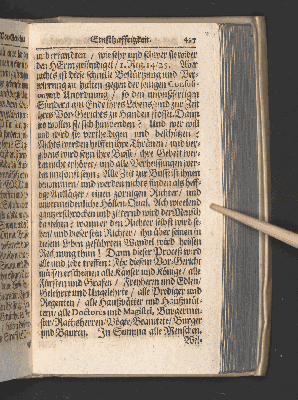 Ernsthafftigkeit. 427
und verstanden / wie sehr und schwer sie wider
den HErrn gesündiget / 1. Reg. 14/25. Aber
welches ist diese schnelle Bestürtzung und Ver-
wirrung zu halten gegen der jenigen Confusi-
on und Unordnung / so den unbußfertigen
Sündern am Ende ihres Lebens / und zur Zeit
ihres Vor-Gerichts zu Handen stosset. Dann
wo wollen sie sich hinwenden? Und wer will
und wird sie vertheidigen und beschützen?
Nichts werden helffen ihre Thränen / und ver-
gebens wird seyn ihre Busse / ihre Gebet wer-
den nicht erhöret / und alle Verheissungen wer-
den umsonst seyn: Alle Zeit zur Busse ist ihnen
benommen / und werden nichts finden als heff-
tige Ankläger / einen zornigen Richter / und
unvermeidentliche Höllen-Qual. Ach wie elend
gantz erschrocken und zitternd wird der Mensch
da stehen? wann er den Richter selbst wird se-
hen / und dieser sein Richter / ihn über seinen in
diesem Leben geführten Wandel wird heissen
Rechnung thun! Dann dieser Proceß wird
alle und jede treffen: Für diesem Vor-Gericht
müssen erscheinen alle Käyser und Könige / alle
Fürsten und Grafen / Freyherrn und Edlen /
Gelehrte und Ungelehrte / alle Prediger und
Regenten / alle Haußvätter und Haußmüt-
ter / alle Doctores und Magistri, Burgermei-
ster / Rathsherren / Vögte / Beamtete / Burger
und Bauren. In Summa alle Menschen.
Wel-